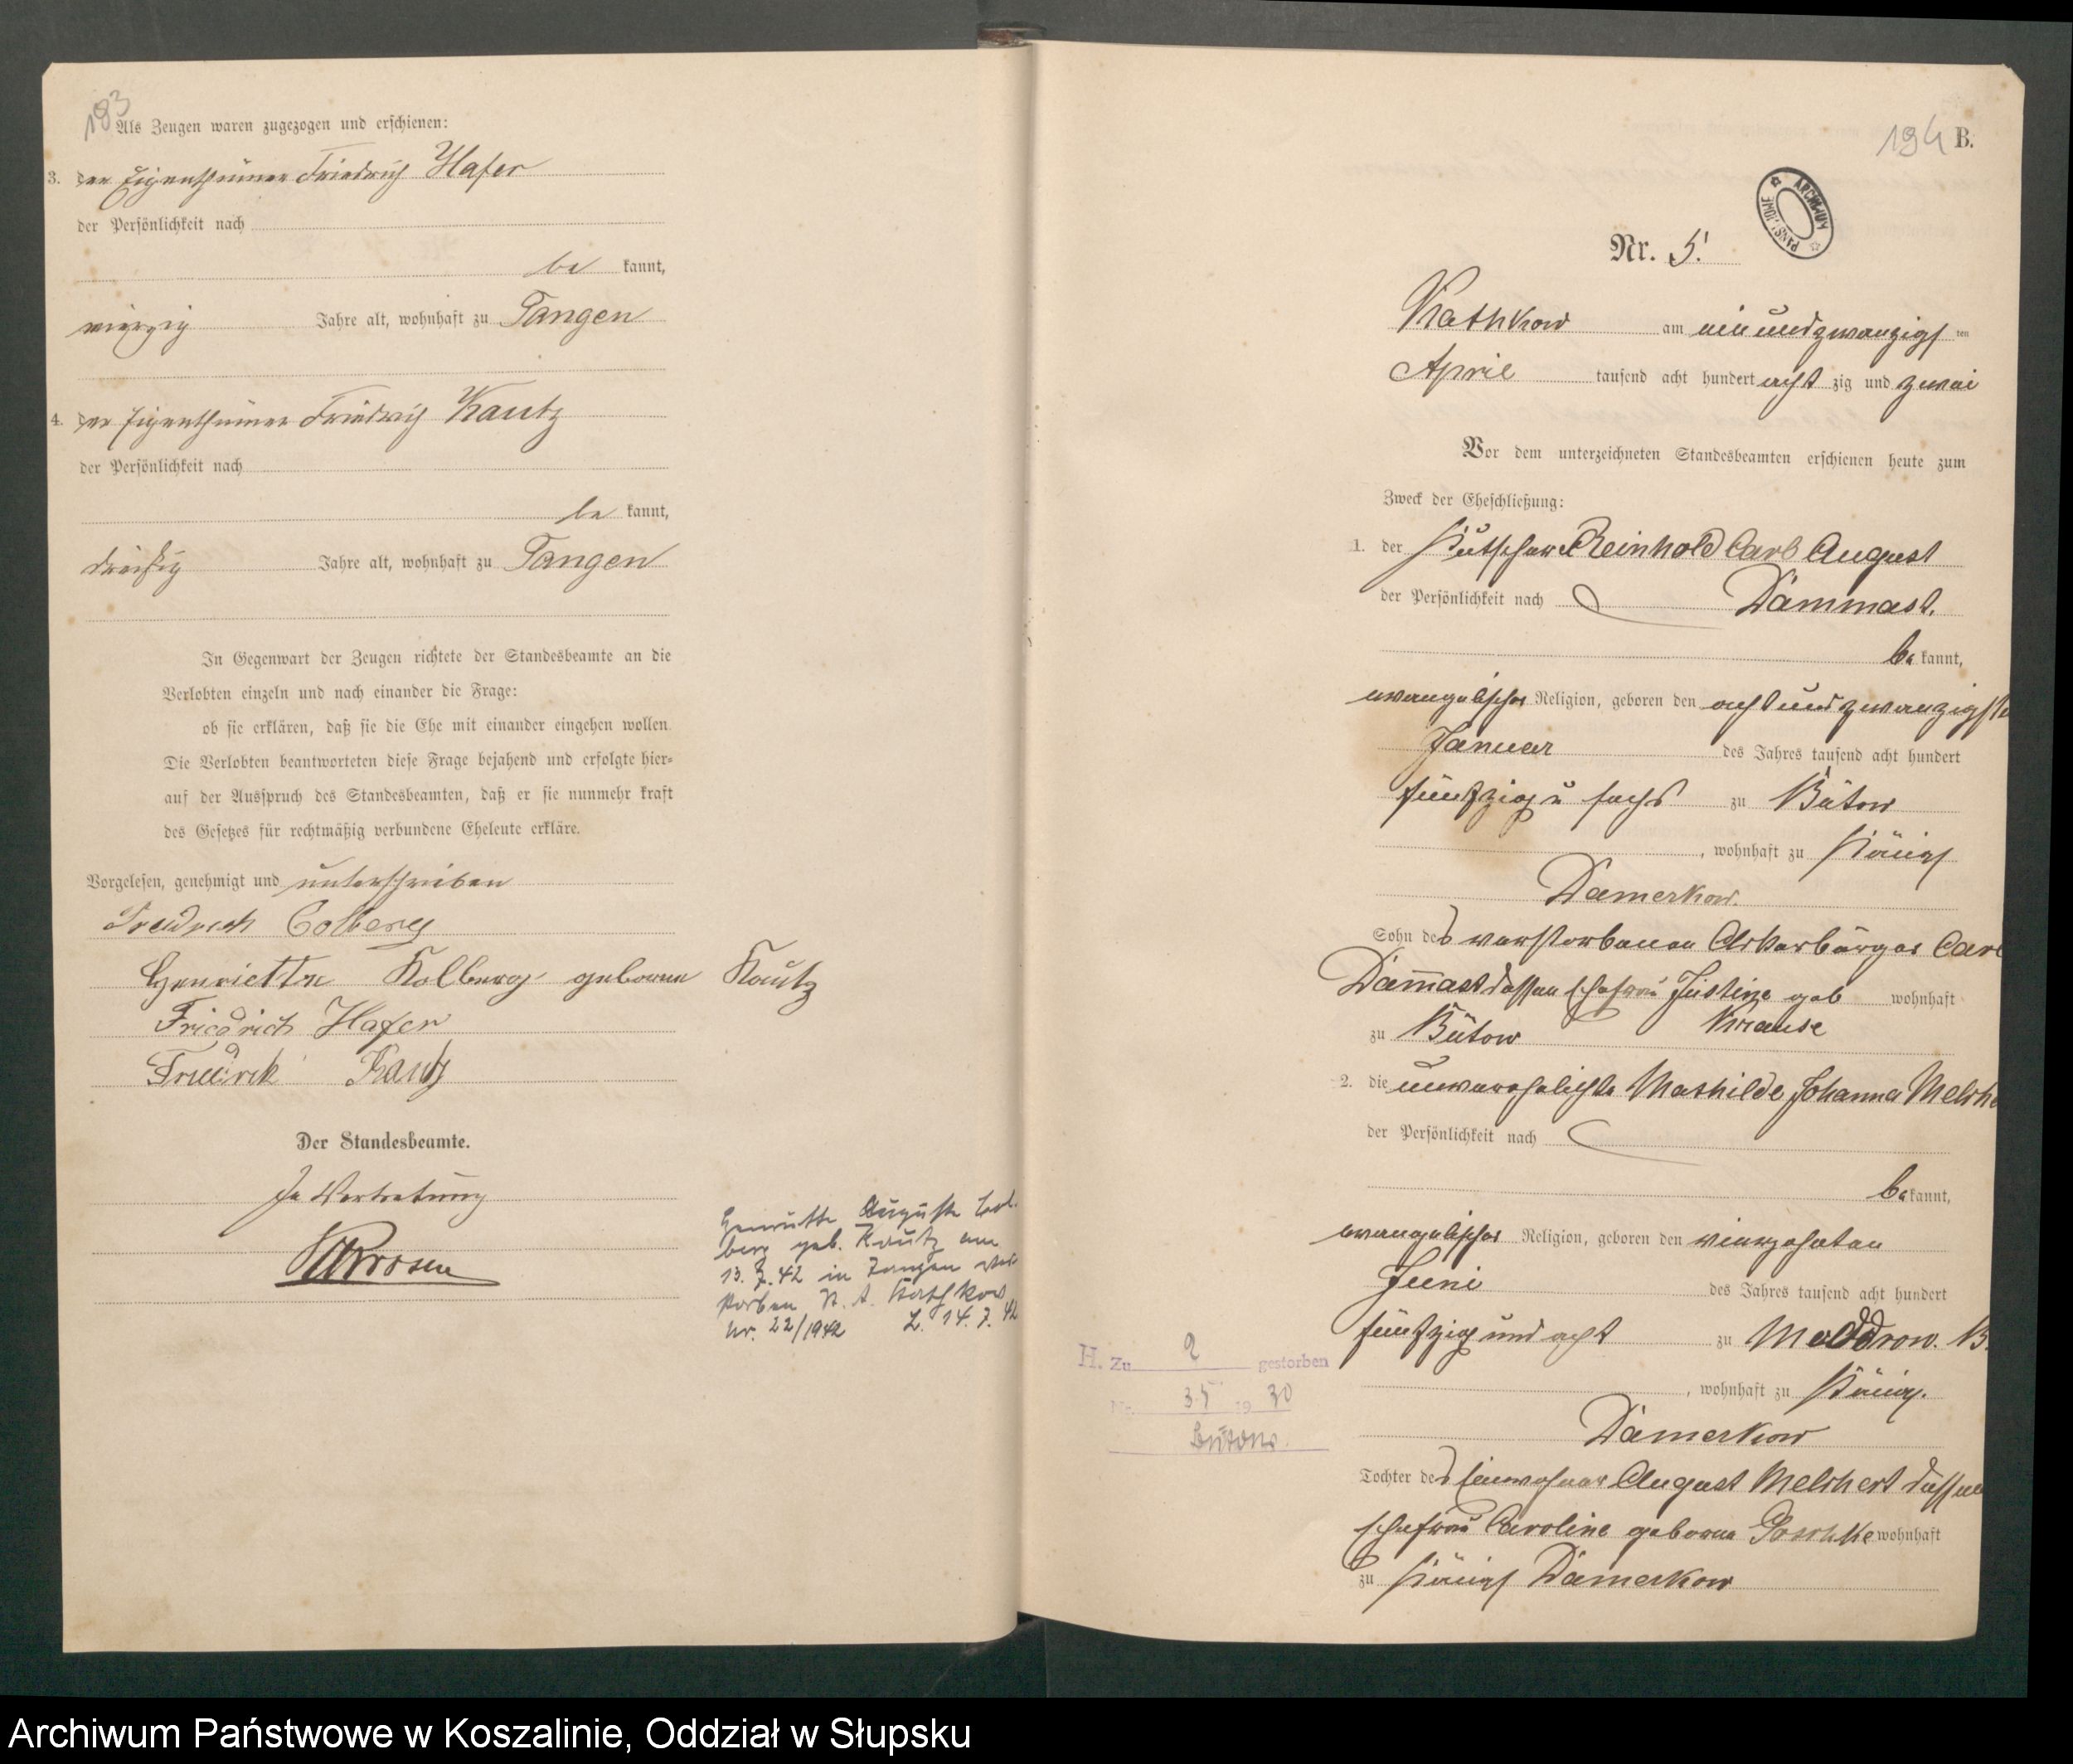 193
Als Zeugen waren zugezogen und erschienen:
3. der Eigenthümer Friedrich Hafer
der Persönlichkeit nach
be kannt,
vierzig Jahre alt, wohnhaft zu Tangen
4. der Eigenthümer Friedrich Kautz
der Persönlichkeit nach
be kannt,
dreißig Jahre alt, wohnhaft zu Tangen
In Gegenwart der Zeugen richtete der Standesbeamte an die
Verlobten einzeln und nach einander die Frage:
ob sie erklären, daß sie die Ehe mit einander eingehen wollen.
Die Verlobten beantworteten diese Frage bejahend und erfolgte hier-
auf der Ausspruch des Standesbeamten, daß er sie nunmehr kraft
des Gesetzes für rechtmäßig verbundene Eheleute erkläre.
Vorgelesen, genehmigt und unterschrieben
Friedrich Colberg
Henriette Kolberg geborene Kautz
Friedrich Hafer
Friedrich Kautz
Der Standesbeamte.
In Vertretung
Henriette Auguste Col-
berg geb. Kautz am
13. 7. 42 in Tangen ver-
storben St. A. Kathkow
Nr. 22/1942 L. 14. 7. 42
194 B.
ARCHIWUM PAŃSTWOWE
Nr. 5.
Kathkow am ein und zwanzigs ten
April tausend acht hundert acht zig und zwei
Vor dem unterzeichneten Standesbeamten erschienen heute zum
Zweck der Eheschließung:
1. der Kutscher Reinhold Carl August
der Persönlichkeit nach Dämmast.
be kannt,
evangelischer Religion, geboren den acht und zwanzigsten
Januar des Jahres tausend acht hundert
fünfzig u sechs zu Bütow
, wohnhaft zu Königs
Damerkow.
Sohn des verstorbenen Ackerbürger Carl
Dam̅ast dessen Ehefrau Justine geb wohnhaft
zu Bütow Krause
2. die unverehelichte Mathilde Johanna Melche
der Persönlichkeit nach
be kannt,
evangelischer Religion, geboren den vierzehnten
Juni des Jahres tausend acht hundert
fünfzig und acht zu Moddrow. B.
, wohnhaft zu König.
Damerkow
H. Zu 2 gestorben
Nr. 35 19 30
Bütow.
Tochter des Einwohner August Melchert dessen
Ehefrau Caroline geborne Poschke wohnhaft
zu Königs Damerkow
Archiwum Państwowe w Koszalinie, Oddział w Słupsku